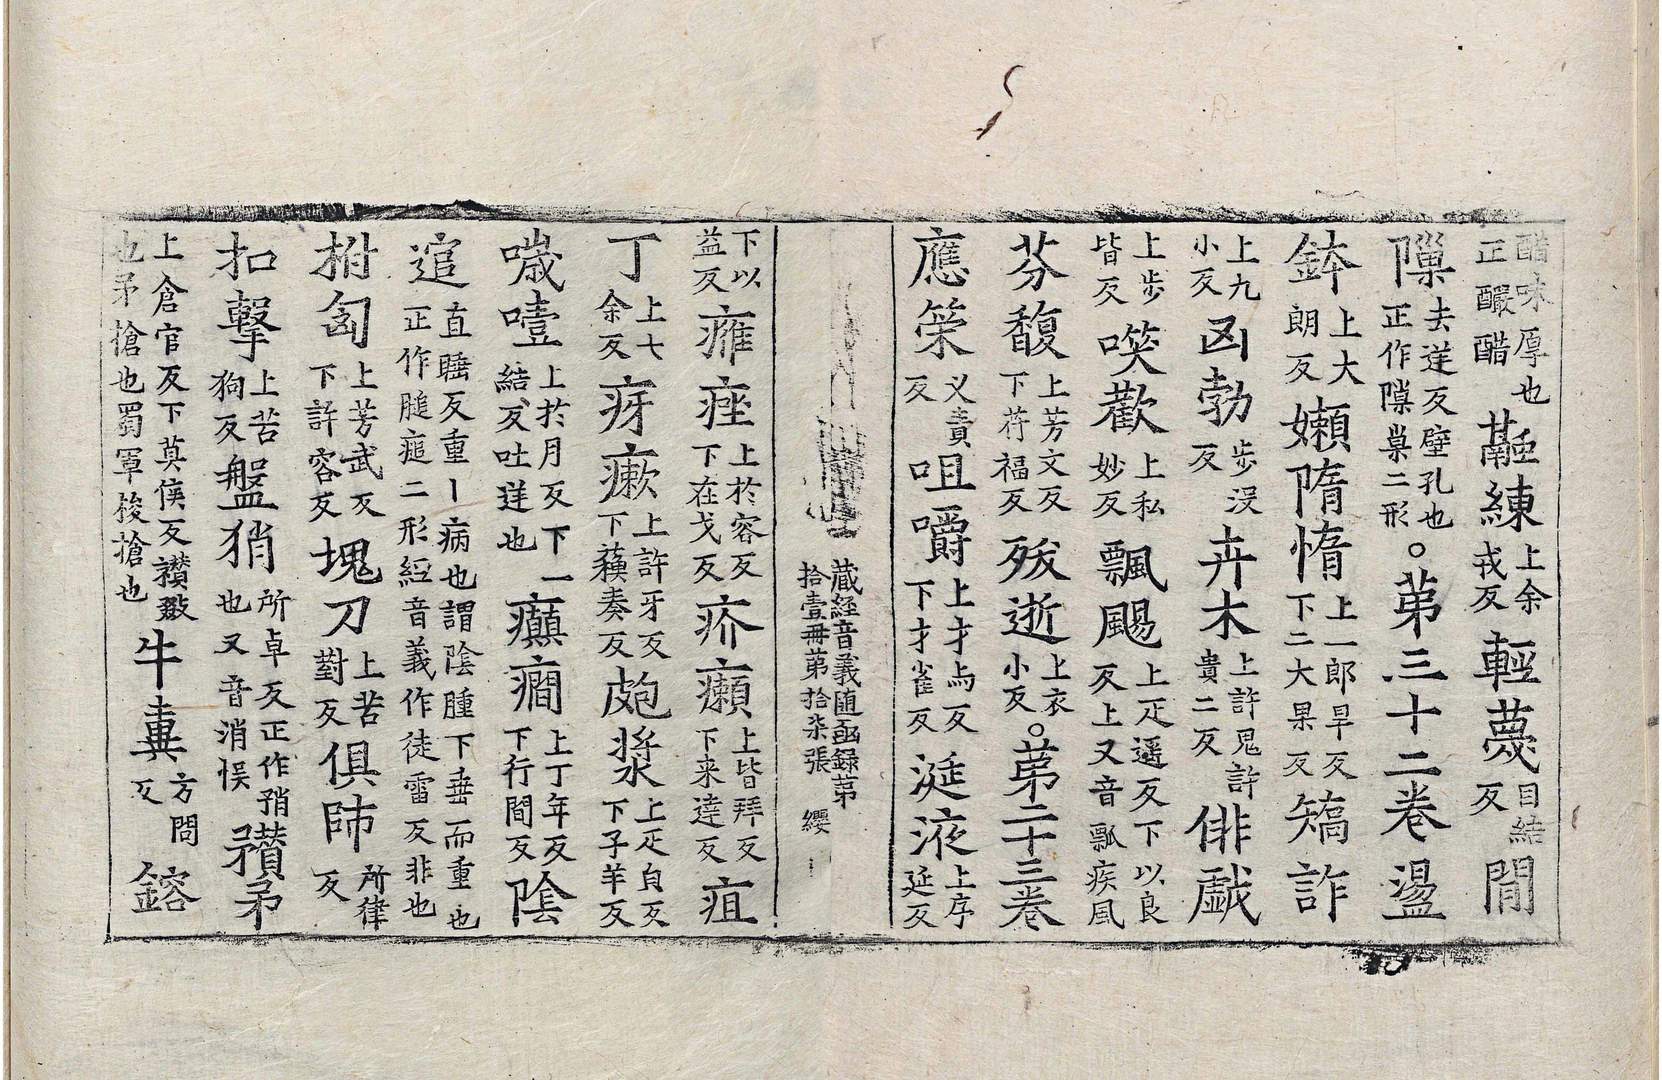 醋味厚也正釅醋 𪎊練上余戎反 輕蔑目結反 間
隟去逆反壁孔也正作隙㡣二形。苐三十二卷 盪
鉢上大朗反 嬾墮惰上一郎旱反下二大果反 矯詐
上九小反 㓙勃步没反 卉木上許鬼許貴二反 俳戲
上步皆反 唉歡上私妙反 飄颺上疋遥反下以良反上又音瓢疾風
芬馥上芳文反下苻福反 殀逝上衣小反。苐三十三卷
應䇦义責反 咀嚼上才与反下才雀反 涎液上序延反
蔵經音義随函録苐拾壹冊苐拾柒張 纓
下以益反 癰痤上於容反下在戈反 疥癩上皆拜反下来達反 疽
丁上七余反 疨瘶上許牙反下蘓奏反 皰漿上疋皃反下子羊反
噦噎上於月反下一結反吐逆也 癲癇上丁年反下行間反 陰
㿉直睡反重丨病也謂陰腫下垂而重也正作膇㾽二形經音義作徒雷反非也
拊匈上芳武反下許容反 塊刀上苦對反 俱𠂤所律反
扣擊上苦狗反 盤矟所卓反正作矟也又音消悮 穳矛
上倉官反下莫侯反穳䂎也矛槍也蜀軍梭槍也 牛糞方問反 鎔